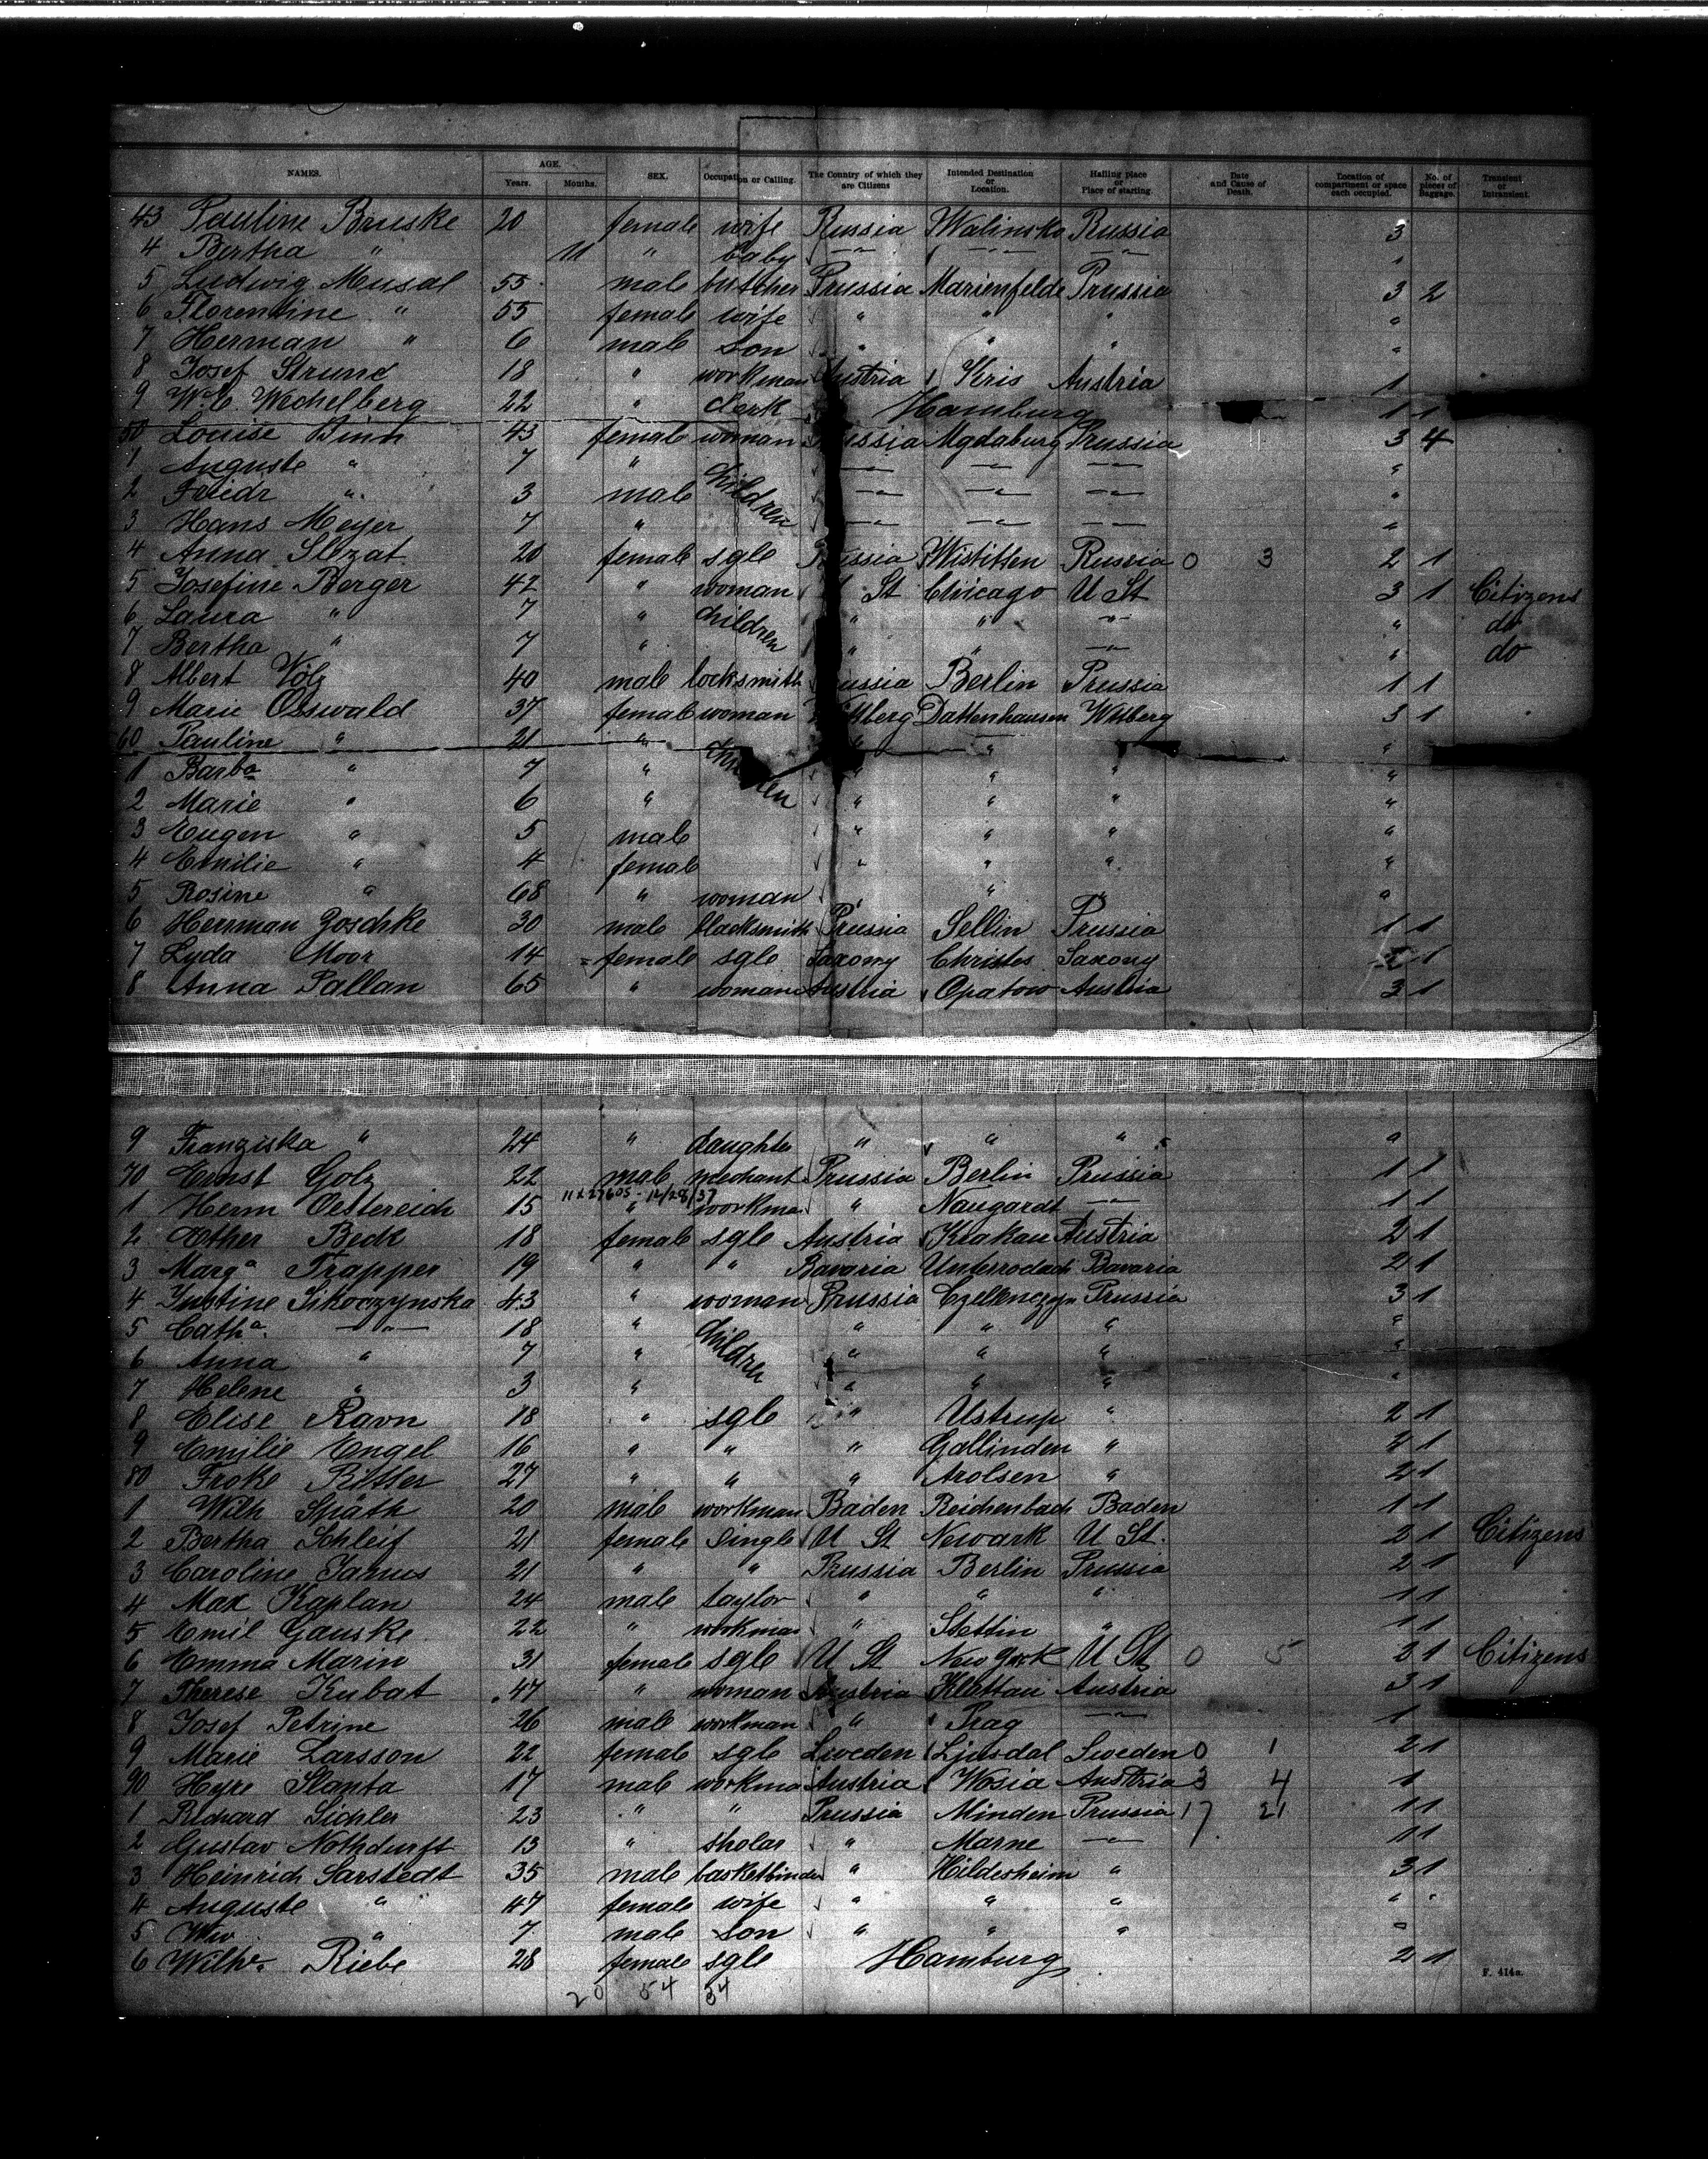 NAMES. AGE. Years. Months. SEX. Occupation or Calling. The Country of which they are Citizens Intended Destination or Location. Hailing place or Place of starting. Date and Cause of Death. Location of compartment or space each occupied. No. of pieces of Baggage. Transient or Intransient.
43 Pauline Bruske 20 female wife Russia Walinsko Russia 3
4 Bertha " 11 " baby —"— —"— —"— "
5 Ludwig Musal 55 male butcher Prussia Marienfelde Prussia 3 2
6 Florentine " 55 female wife " " " "
7 Herman " 6 male son " " " "
8 Josef Strund 18 " workman Austria Kris Austria 1
9 W. E. Wichelberg 22 " clerk Hamburg 1 1
50 Louise Binn 43 female woman Prussia Mgdaburg Prussia 3 4
1 Auguste " 7 " children —"— —"— —"— "
2 Friedr " 3 male —"— —"— —"— "
3 Hans Meyer 7 " —"— —"— —"— "
4 Anna Slizat 20 female sgle Russia Wistitten Russia 0 3 2 1
5 Josefine Berger 42 " woman U St Chicago U St 3 1 Citizens
6 Laura " 7 " children " " —"— " do
7 Bertha " 7 " " " —"— " do
8 Albert Völz 40 male locksmith Prussia Berlin Prussia 1 1
9 Marie Osswald 37 female woman Wttberg Dattenhausen Wttberg 3 1
60 Pauline " 21 " children " " "
1 Barba " 7 " " " " "
2 Marie " 6 " " " " "
3 Eugen " 5 male " " " "
4 Emilie " 4 female " " " "
5 Rosine " 68 " woman " " " "
6 Herrman Zoschke 30 male blacksmith Prussia Sellin Prussia 1 1
7 Lyda Moor 14 female sgle Saxony Christes Saxony 2 1
8 Anna Pallan 65 " woman Austria Opatow Austria 3 1
9 Franziska " 24 " daughter " " " "
70 Ernst Golz 22 male mechant Prussia Berlin Prussia 1 1
1 Herm Oestereich 15 " workma " Naugardt —"— 1 1
2 Ether Beck 18 female sgle Austria Krakau Austria 2 1
3 Marga Trapper 19 " " Bavaria Unterrodach Bavaria 2 1
4 Justine Sikoczynska 43 " woman Prussia Prussia 3 1
5 Catha —"— 18 " children " " " "
6 Anna " 7 " " " " "
7 Helene " 3 " " " " "
8 Elise Ravn 18 " sgle " Ustrup " 2 1
9 Emilie Engel 16 " " " Gallinden " 2 1
80 Froke Ritter 27 " " " Arolsen " 2 1
1 Wilh Späth 20 male workman Baden Reichenbach Baden 1 1
2 Bertha Schleif 21 female Single U St Newark U St. 2 1 Citizens
3 Caroline Jannus 21 " " Prussia Berlin Prussia 2 1
4 Max Kaplan 24 male taylor " " " 1 1
5 Emil Gauske 22 " workman " Stettin " 1 1
6 Emma Marin 31 female sgle U St New York U St 0 5 2 1 Citizens
7 Therese Kubat 47 " woman Austria Klattau Austria 3 1
8 Josef Petrine 26 male workman " Prag —"— 1
9 Marie Larsson 22 female sgle Sweden Ljusdal Sweden 0 1 2 1
90 Hyre Slanta 17 male workma Austria Wosia Austria 3 4 1
1 Richard Sichler 23 " " Prussia Minden Prussia 17 21 1 1
2 Gustav Nothdurft 13 " sholar " Marne —"— 1 1
3 Heinrich Sarstedt 35 male basketbinder " Hildesheim " 3 1
4 Auguste " 47 female wife " " " " "
5 " 7 male son " " " "
6 Wilhe Riebe 28 female sgle Hamburg 2 1
20 54 34
F. 414a.